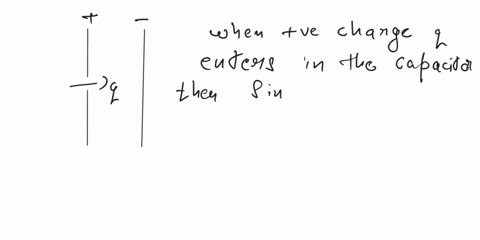 + -
when +ve change q
enters in the capacitor
q then Sin